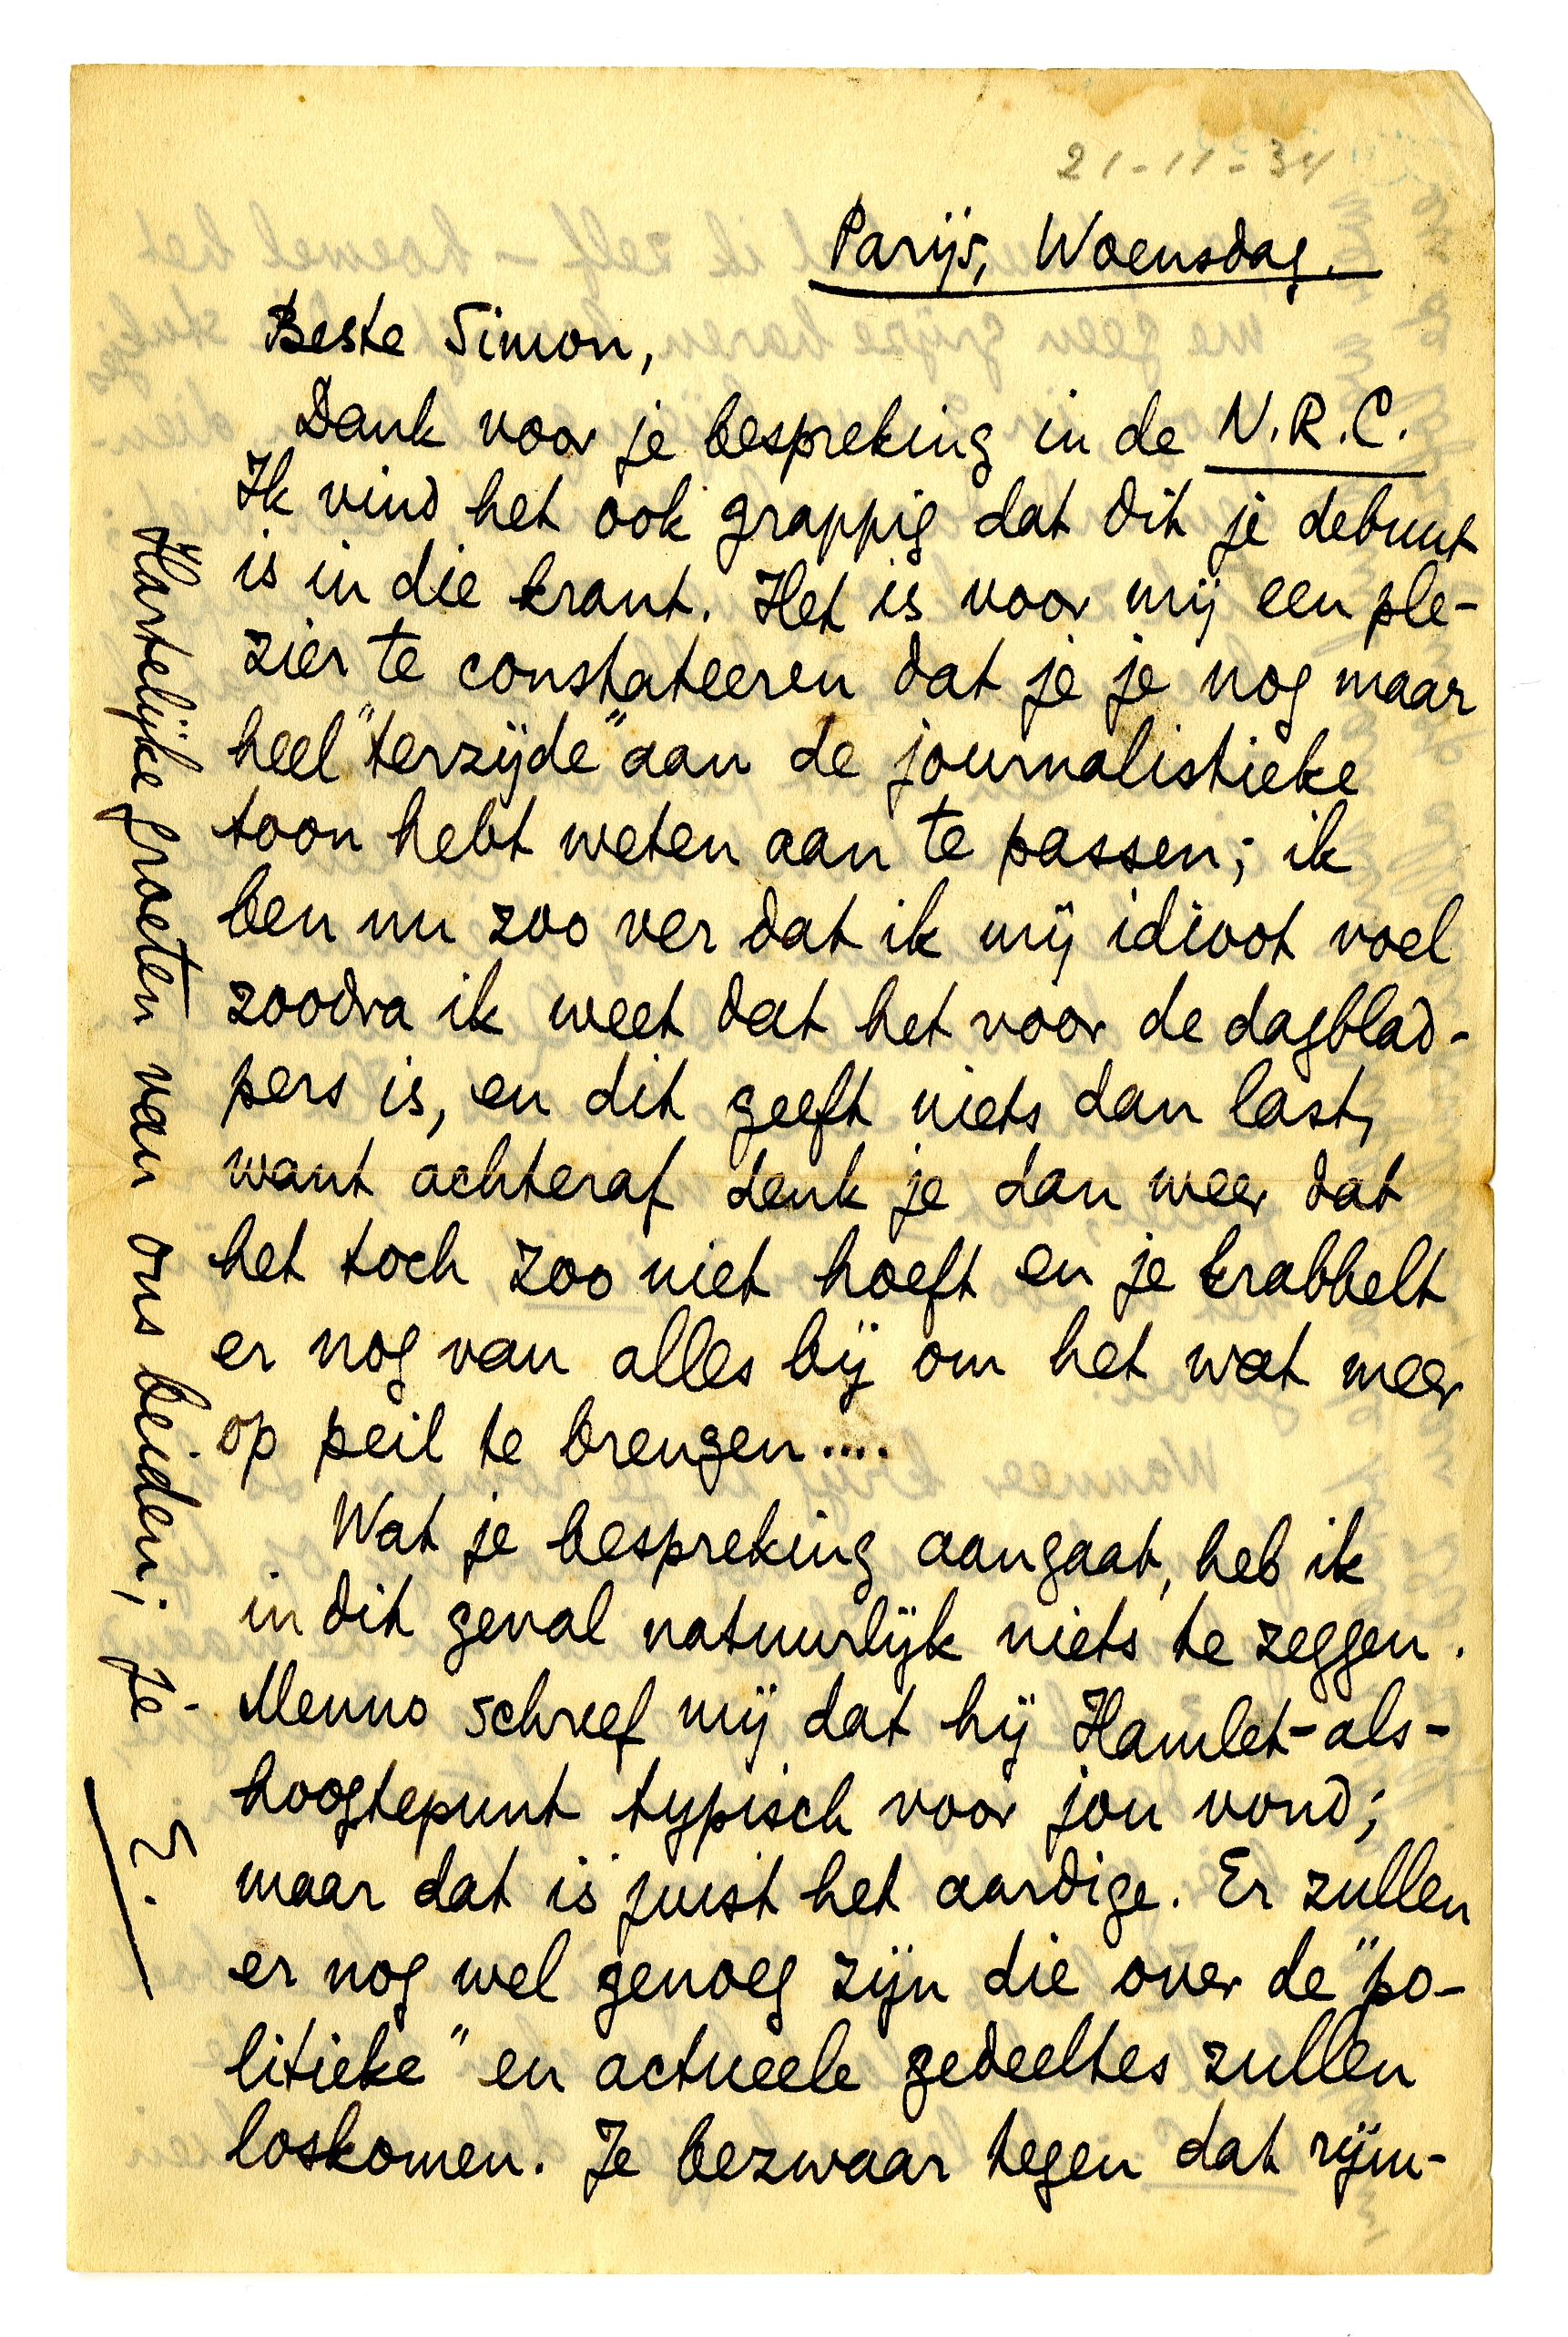 21-11-34
Parijs, Woensdag.
Beste Simon,
Dank voor je bespreking in de N.R.C.
Ik vind het ook grappig dat dit je debuut
is in die krant. Het is voor mij een ple-
zier te constateeren dat je je nog maar
heel "terzijde" aan de journalistieke
toon hebt weten aan te passen; ik
ben nu zoo ver dat ik mij idioot voel
zoodra ik weet dat het voor de dagblad-
pers is, en dit geeft niets dan last,
want achteraf denk je dan weer dat
het toch zoo niet hoeft en je krabbelt
er nog van alles bij om het wat meer
op peil te brengen....
Wat je bespreking aangaat, heb ik
in dit geval natuurlijk niets te zeggen.
Menno schreef mij dat hij Hamlet-als-
hoogtepunt typisch voor jou vond;
maar dat is juist het aardige. Er zullen
er nog wel genoeg zijn die over de "po-
litieke" en actueele gedeeltes zullen
loskomen. Je bezwaar tegen dat rijm-
Hartelijke groeten van ons beiden; je
E.